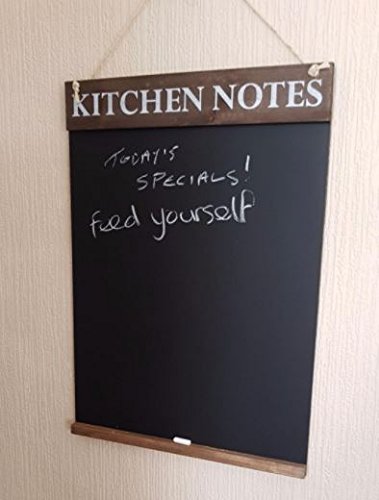 KITCHEN NOTES
TODAY'S
SPECIALS!
feed yourself